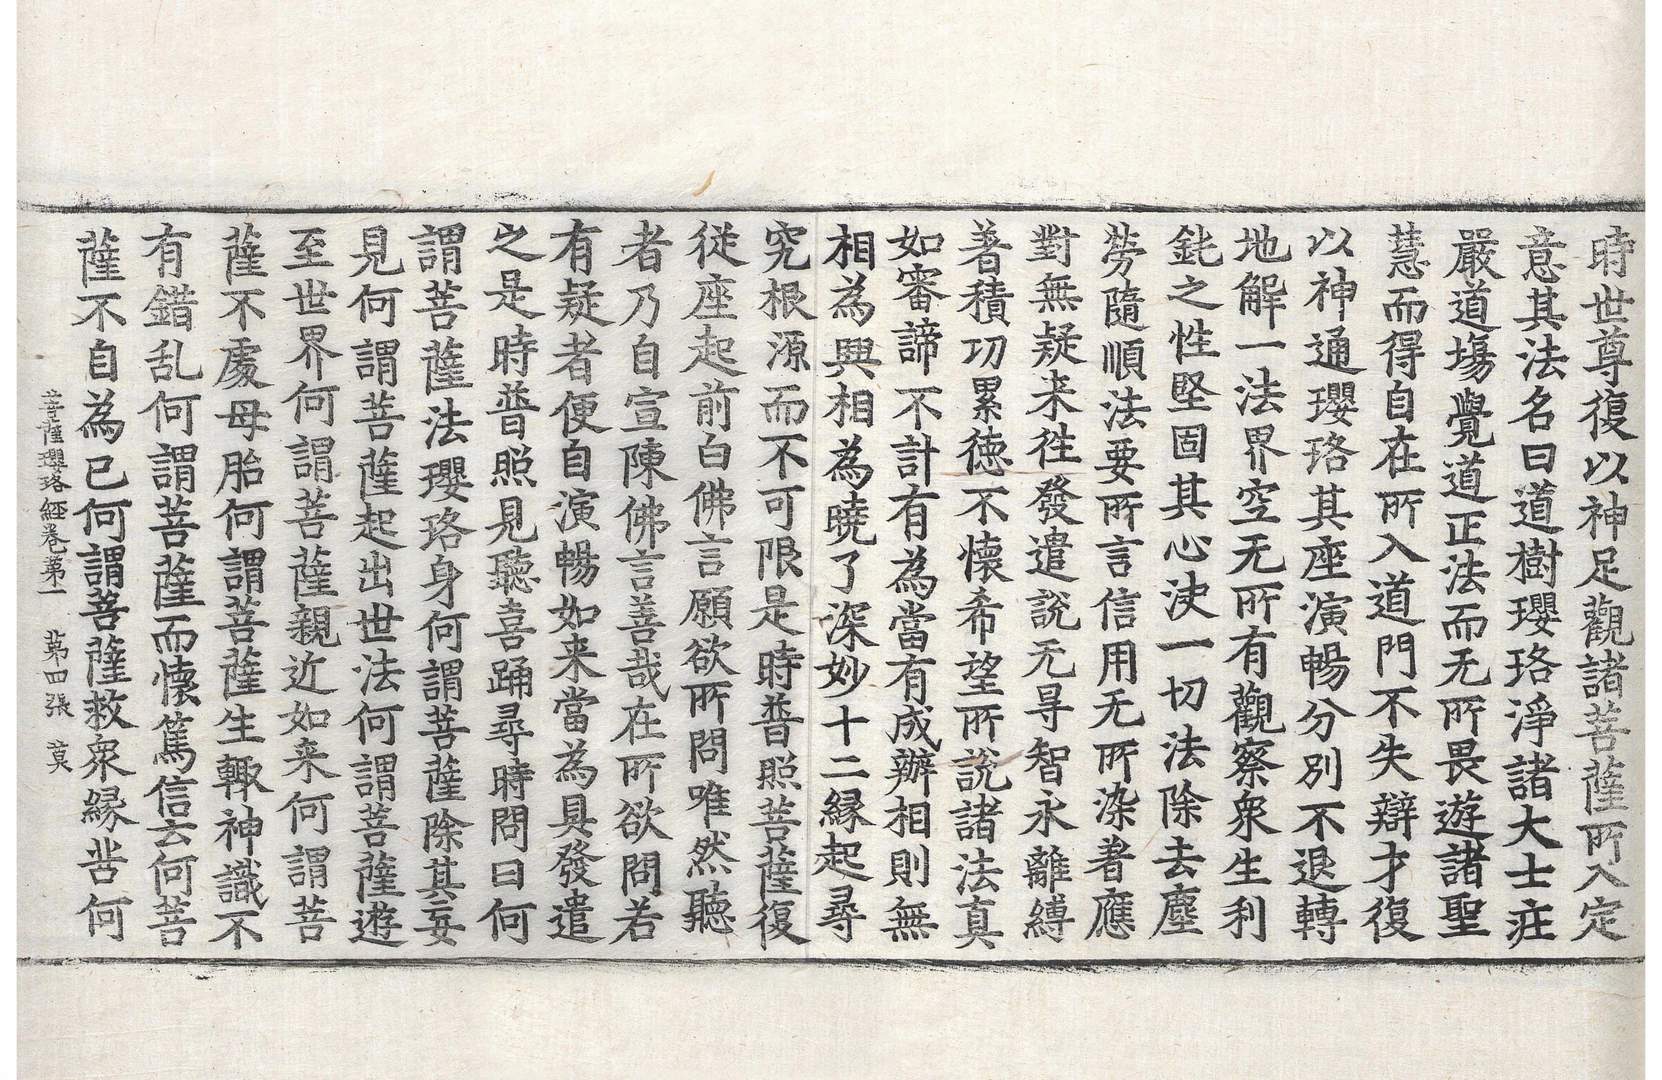 時世尊復以神足觀諸菩薩所入定
意其法名曰道樹瓔珞淨諸大士庄
嚴道塲覺道正法而无所畏遊諸聖
慧而得自在所入道門不失辯才復
以神通瓔珞其座演暢分別不退轉
地解一法界空无所有觀察衆生利
鈍之性堅固其心决一切法除去塵
勞隨順法要所言信用无所染著應
對無疑来徃發遣說无㝵智永離縛
著積功累徳不懷希望所說諸法真
如審諦不計有為當有成辦相則無
相為興相為曉了深妙十二縁起尋
究根源而不可限是時普照菩薩復
從座起前白佛言願欲所問唯然聽
者乃自宣陳佛言善哉在所欲問若
有疑者便自演暢如来當為具發遣
之是時普照見聽喜踊尋時問曰何
謂菩薩法瓔珞身何謂菩薩除其妄
見何謂菩薩起出世法何謂菩薩遊
至世界何謂菩薩親近如来何謂菩
薩不處母胎何謂菩薩生輙神識不
有錯乱何謂菩薩而懷篤信云何菩
薩不自為己何謂菩薩救衆縁苦何
菩薩瓔珞經卷第一 苐四張 莫